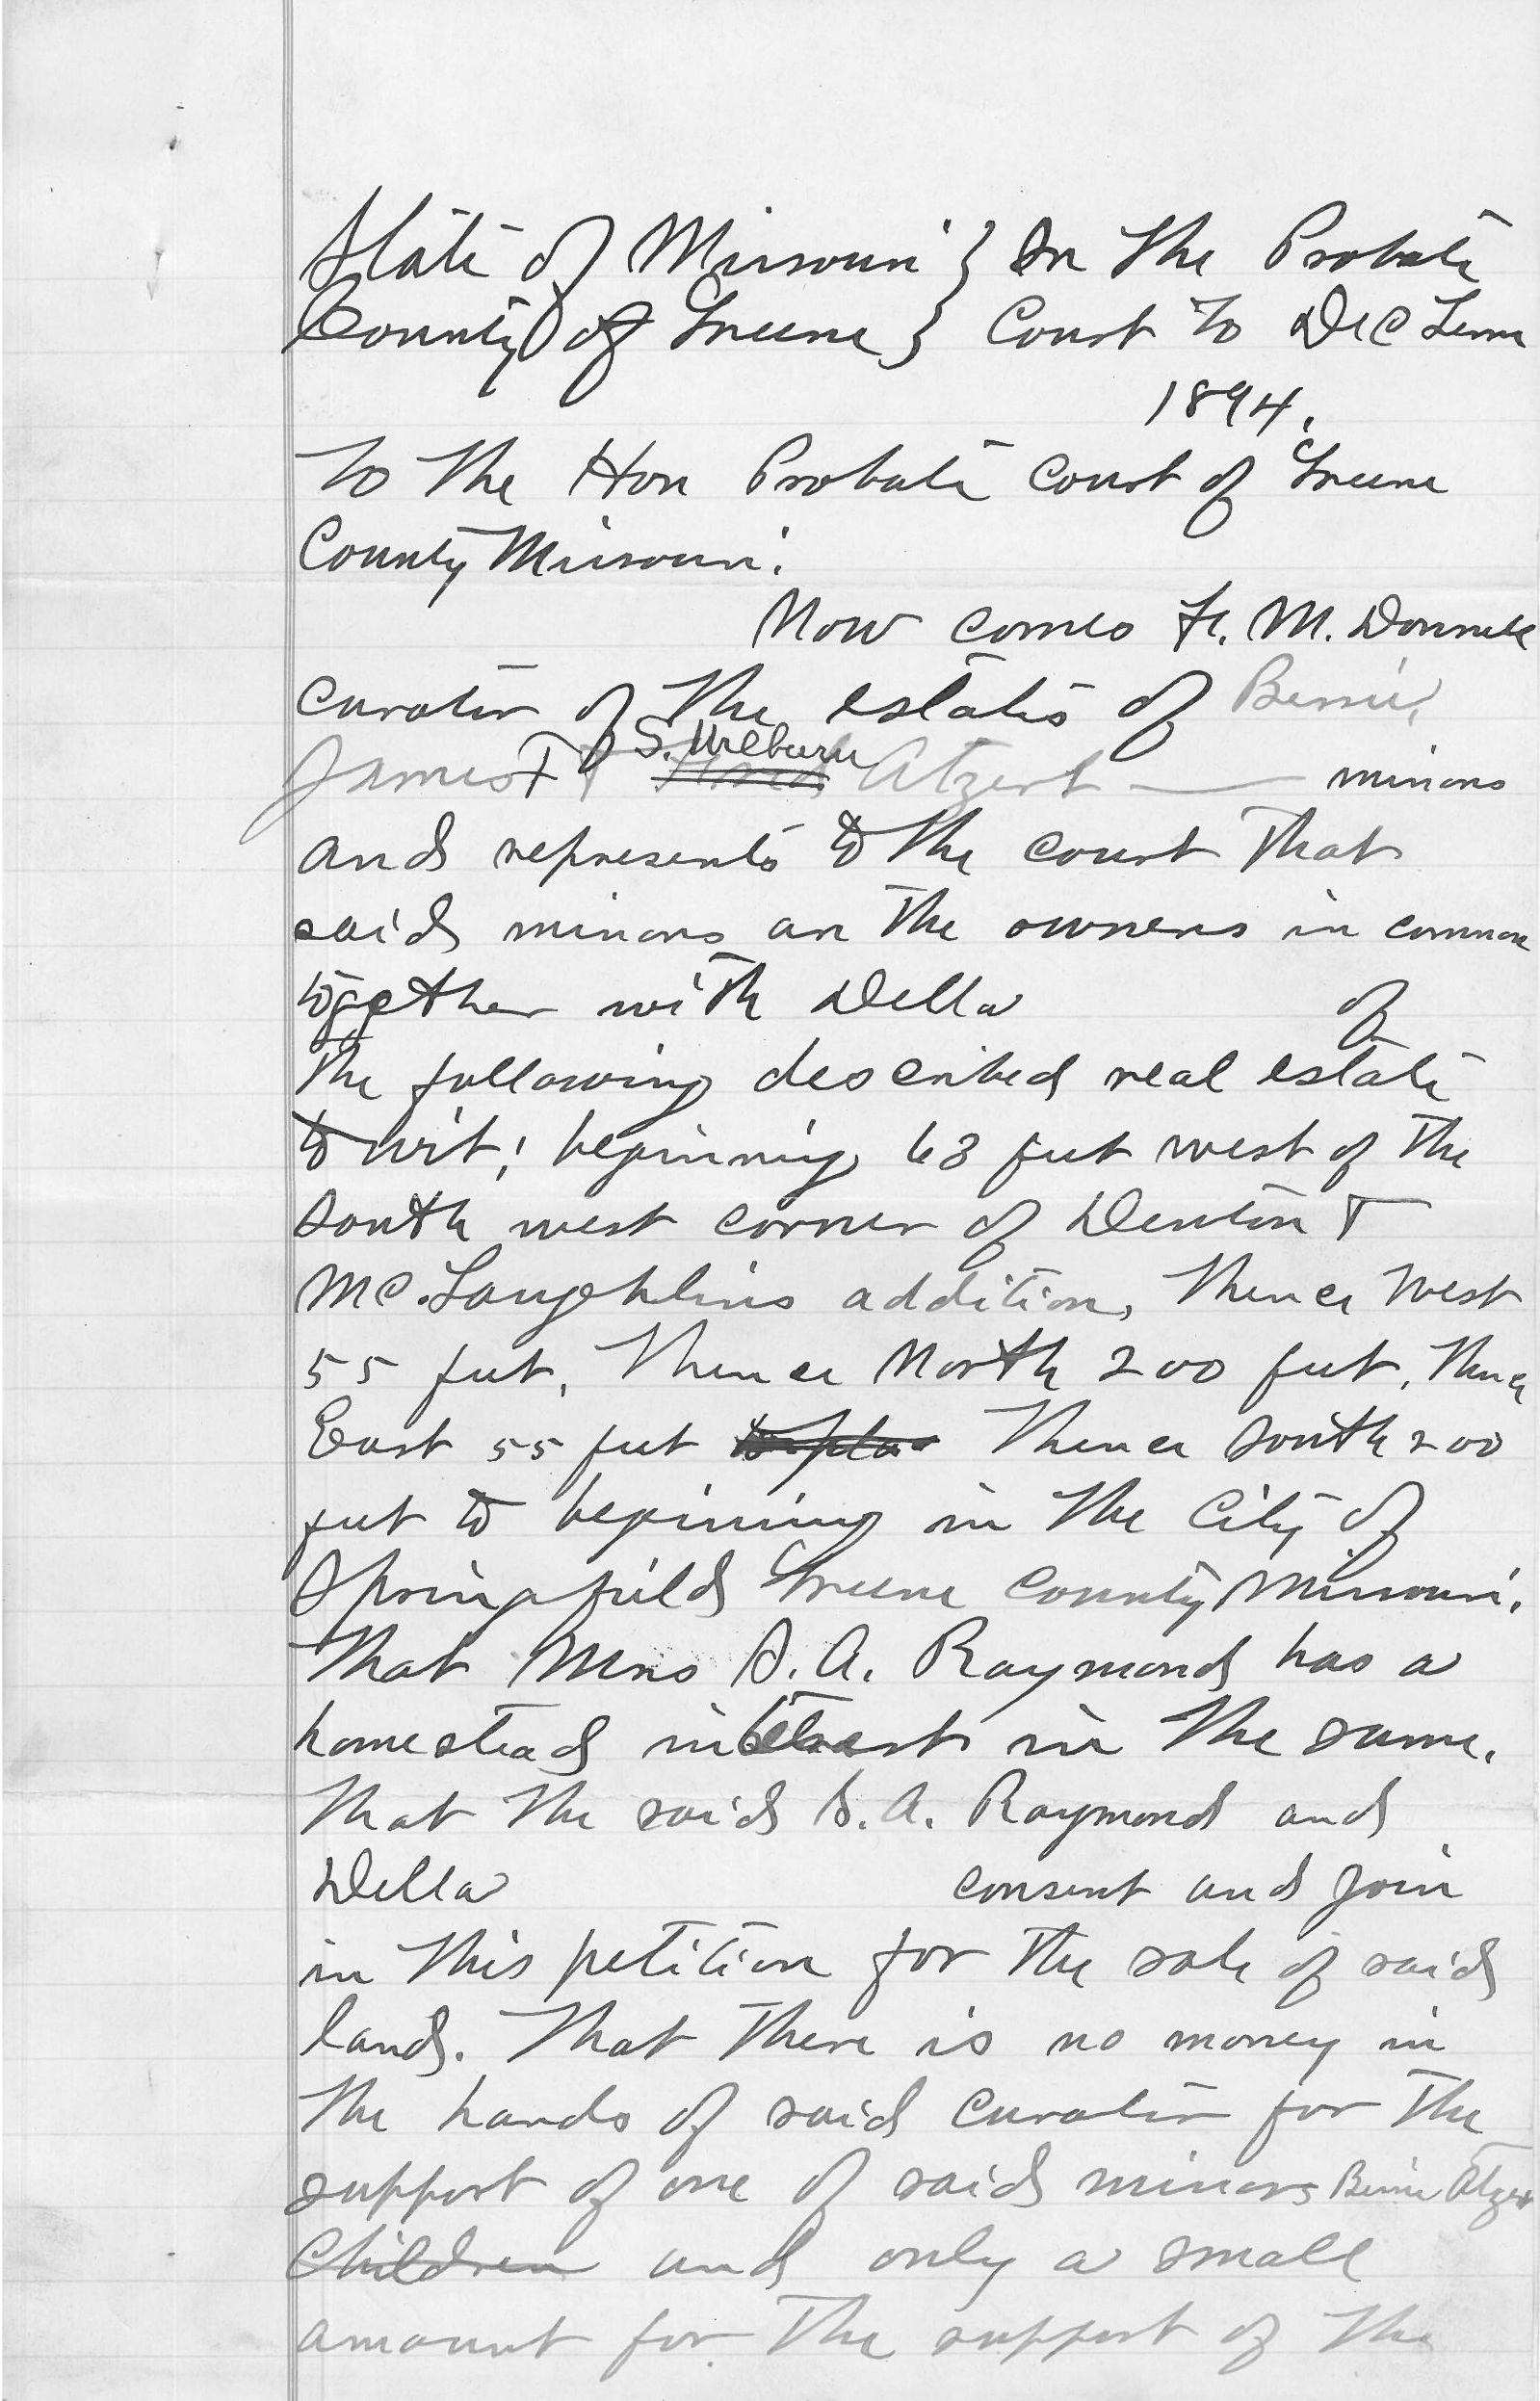 State of Missouri } In the Probate
County of Greene } Court to Dec Term
1894.
To the Hon Probate Court of Greene
County Missouri.
Now comes F. M. Donnell
curator of the estates of Bennie,
S. Wilburn
James F & Atzert — minors
and represents to the court that
said minors are the owners in common
together with Della of
the following described real estate
to wit; beginning 63 feet west of the
South west corner of Denton &
McLaughlins addition, Thence West
55 feet, Thence North 200 feet, Thence
East 55 feet Thence South 200
feet to beginning in the City of
Springfield Greene County Missouri.
That Mrs S. A. Raymond has a
homestead interest in the same.
That the said S. A. Raymond and
Della consent and join
in this petition for the sale of said
land. That there is no money in
the hands of said curator for the
support of one of said minors Bennie Atzert
Children and only a small
amount for the support of the